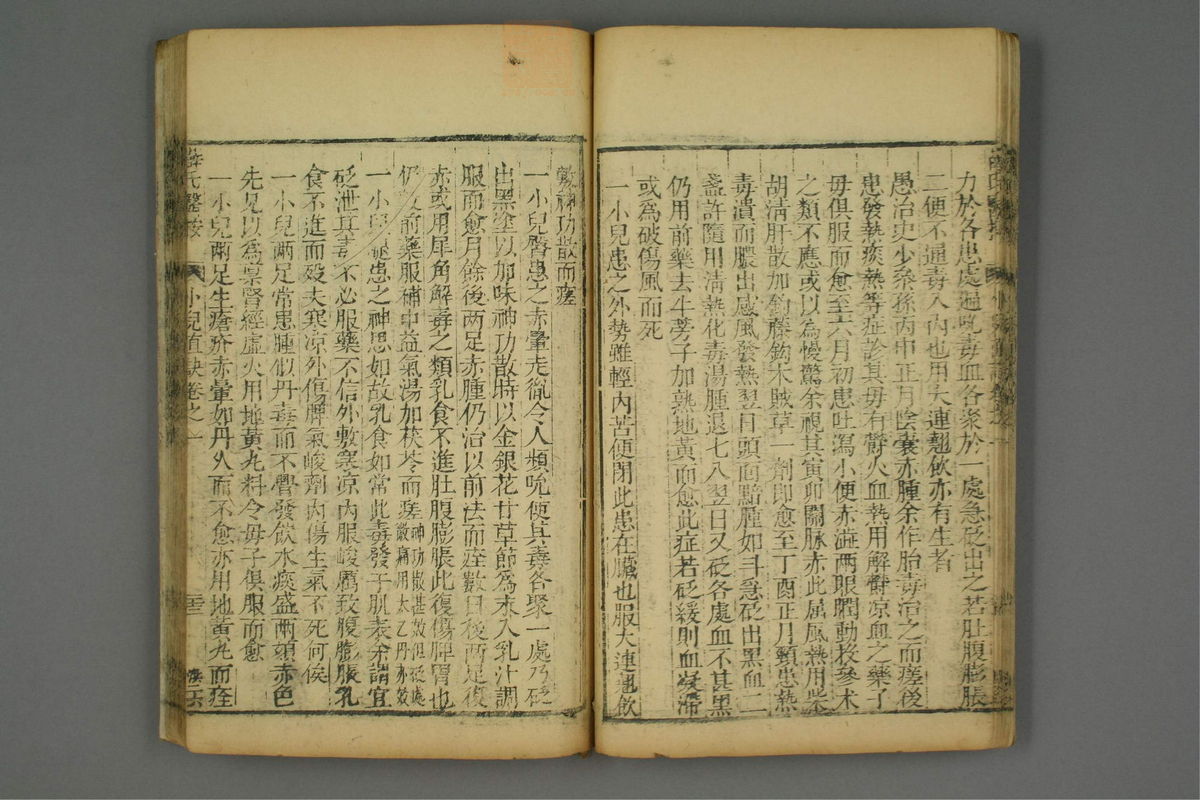 力於各患處遍吮毒血各聚於一處急砭出之若肚腹膨脹
二便不通毒入內也用大連翹飲亦有生者
愚治史少叅孫丙申正月陰囊赤腫余作胎毒治之而瘥後
患發熱痰熱等症診其母有欝火血熱用解欝凉血之藥子
母俱服而愈至六月初患吐瀉小便赤澁兩眼瞤動投參术
之類不應或以為慢驚余視其寅卯關脉赤此屬風熱用柴
胡清肝散加鈎藤鈎木賊草一劑即愈至丁酉正月頸患熱
毒潰而膿出感風發熱翌日頭靣黯腫如斗急砭出黑血二
盞許隨用清熱化毒湯腫退七八翌日又砭各處血不甚黑
仍用前藥去牛蒡子加熟地黃而愈此症若砭緩則血凝滯
或為破傷風而死
一小兒患之外勢雖輕內苦便閉此患在臟也服大連翹飲
敷神功散而瘥
一小兒臀患之赤暈走彻令人頻吮使其毒各聚一處乃砭
出黑塗以加味神功散時以金銀花甘草節為末入乳汁調
服而愈月餘後两足赤腫仍治以前法而痊數日後两足復
赤或用犀角解毒之類乳食不進肚腹膨脹此復傷脾胃也
仍前藥服補中益氣湯加茯苓而瘥神功散甚效但砭處敷痛用太乙丹亦效
一小兒患之神思如故乳食如常此毒發于肌表余謂宜
砭泄其毒不必服藥不信外敷寒凉內服峻厲致腹膨脹乳
食不進而歿夫寒凉外傷脾氣峻劑內傷生氣不死何俟
一小兒兩足常患腫似丹毒而不欝發飲水痰盛兩頰赤色
先兄以為禀腎經虛火用地黃丸料令母子俱服而愈
一小兒兩足生瘡疥赤暈如丹久而不愈亦用地黃丸而痊
薛氏醫按
小兒直訣卷之一